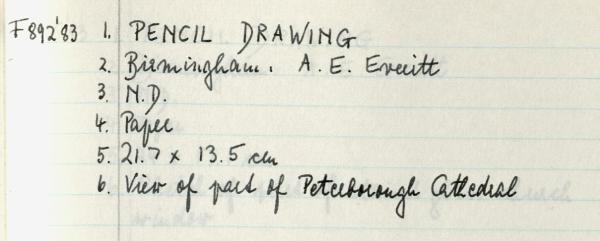 F892'83 1. PENCIL DRAWING
2. Birmingham. A. E. Everitt
3. N.D.
4. Paper
5. 21.7 x 13.5 cm
6. View of part of Peterborough Cathedral